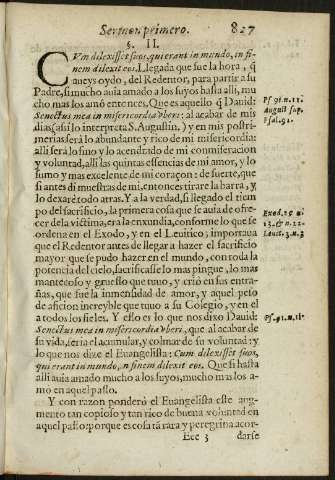 Sermon primero. 827
§. II.
CVm dilexisset suos, qui erant in mundo, in fi-
nem dilexit eos. Llegada que fue la hora, q̃
aueys oydo, del Redentor, para partir a su
Padre, si mucho auia amado a los suyos hasta alli, mu
cho mas los amò entonces, Que es aquello q̃ Dauid:
Senectus mea in misericordia vberi; al acabar de mis
dias (assi lo interpreta S. Augustin,) y en mis postri-
merias serà lo abundante y rico de mi misericordia:
alli serà lo fino y lo acendrado de mi conmiseracion
y voluntad, alli las quintas essencias de mi amor, y lo
sumo y mas excelente de mi coraçon: de suerte, que
si antes di muestras de mi, entonces tirare la barra, y
lo dexarè todo atras. Y a la verdad, si llegado el tiem
po del sacrificio, la primera cosa que se auia de ofre-
cer de la victima, era la enxundia, conforme lo que se
ordena en el Exodo, y en el Leuitico; importaua
que el Redentor antes de llegar a hazer el sacrificio
mayor que se pudo hazer en el mundo, con toda la
potencia del cielo, sacrificasse lo mas pingue, lo mas
mantecoso y gruesso que tuuo, y criò en sus entra-
ñas, que fue la inmensidad de amor, y aquel peso
de aficion increyble que tuuo a su Colegio, y en el
a todos los fieles. Y esso es lo que nos dixo Dauid:
Senectus mea in misericordia vberi, que al acabar de
su vida, seria el acumular, y colmar de su voluntad: y
lo que nos dize el Euangelista: Cum dilexisset suos,
qui erant in mundo, in finem dilexit eos. Que si hasta
alli auia amado mucho a los suyos, mucho mas los a-
mò en aquel passo.
Y con razon ponderò el Euangelista este aug-
mento tan copioso y tan rico de buena voluntad en
aquel passo: porque es cosa tã rara y peregrina acor-
Eee 3 darse
Ps. 91. n. 11.
August. sup.
Psal. 91.
Exod. 29 n.
13. & n. 22.
Leuit. 3. n. 3
Ps. 91. n. 11.